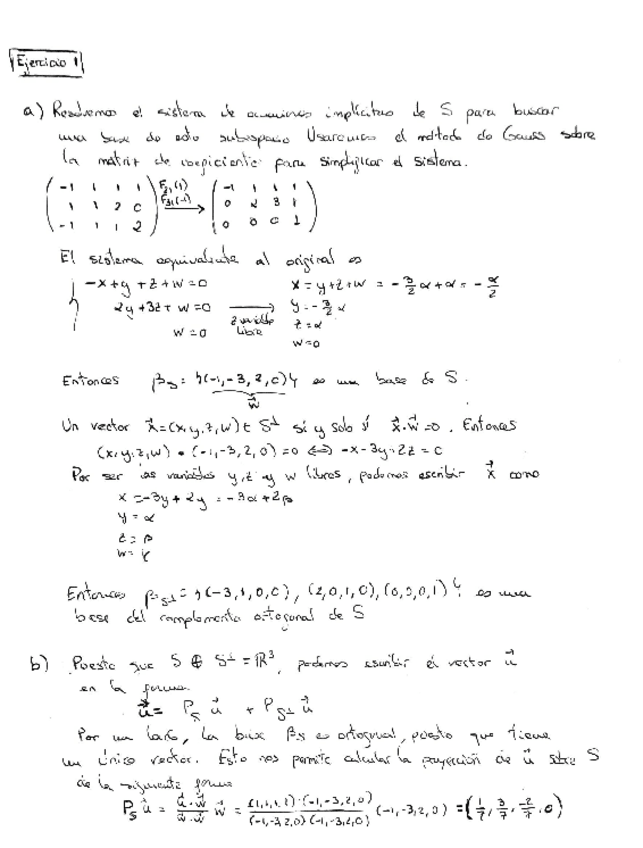 Ejercicio 1
a) Resolvemos el sistema de ecuaciones implícitas de S para buscar
una base de este subespacio. Usaremos el método de Gauss sobre
la matriz de coeficientes para simplificar el sistema.
( -1 1 1 1 ) F21(1) ( -1 1 1 1 )
( 1 1 2 0 ) F31(-1) → ( 0 2 3 1 )
( -1 1 1 2 ) ( 0 0 0 1 )
El sistema equivalente al original es
-x+y+z+w=0 x=y+z+w = -3/2 α+α = -α/2
2y+3z+w=0 → y=-3/2 α
w=0 z variable libre z=α
w=0
Entonces βS = {(-1,-3,2,0)} es una base de S.
w⃗
Un vector x⃗=(x,y,z,w) ∈ S⊥ si y solo si x⃗·w⃗=0. Entonces
(x,y,z,w)·(-1,-3,2,0)=0 ⟺ -x-3y+2z=0
Por ser las variables y,z y w libres, podemos escribir x⃗ como
x=-3y+2y=-3α+2β
y=α
z=β
w=γ
Entonces βS⊥={(-3,1,0,0),(2,0,1,0),(0,0,0,1)} es una
base del complemento ortogonal de S
b) Puesto que S ⊕ S⊥=ℝ³, podemos escribir el vector u⃗
en la forma
u⃗= PS u⃗ + PS⊥ u⃗
Por un lado, la base βS es ortogonal, puesto que tiene
un único vector. Esto nos permite calcular la proyección de u⃗ sobre S
de la siguiente forma
PS u⃗ = u⃗·w⃗/w⃗·w⃗ w⃗ = (1,1,1,2)·(-1,-3,2,0)/(-1,-3,2,0)(-1,-3,2,0) (-1,-3,2,0) =(1/7, 3/7, -2/7, 0)